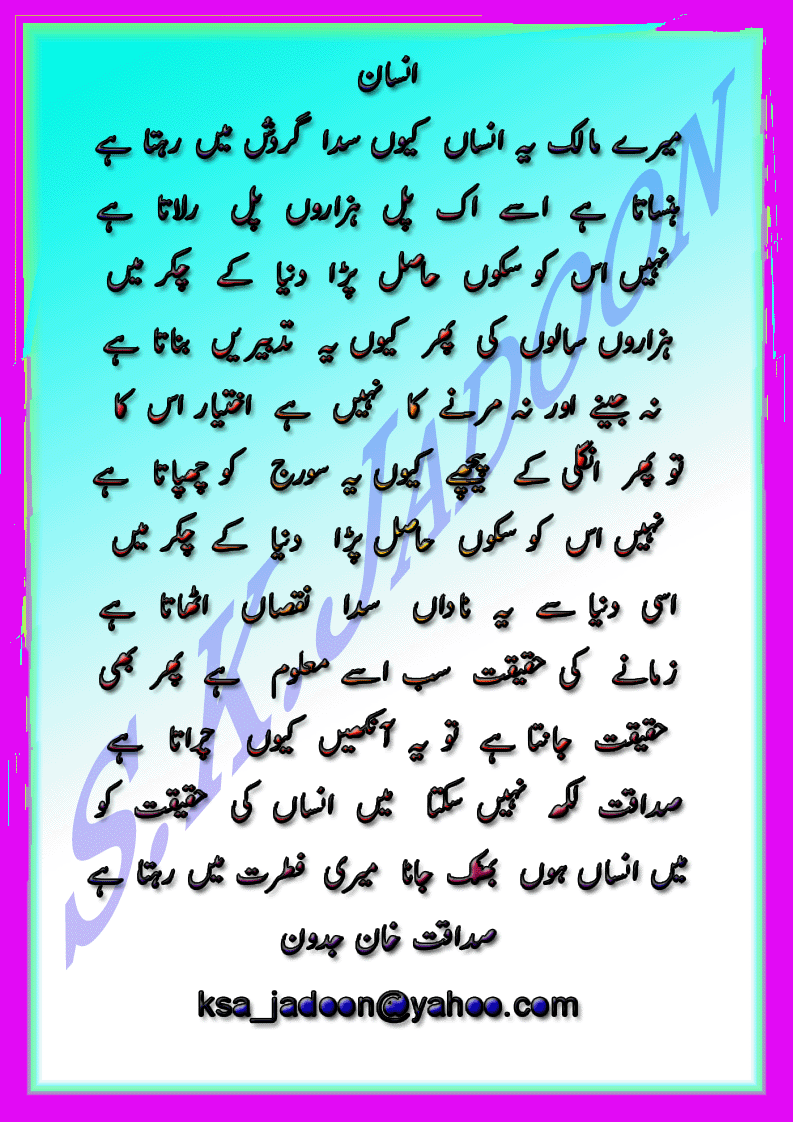 انسان
میرے مالک یہ انساں کیوں سدا گردش میں رہتا ہے
ہنساتا ہے اسے اک پل ہزاروں پل رلاتا ہے
نہیں اس کو سکوں حاصل پڑا دنیا کے چکر میں
ہزاروں سالوں کی پھر کیوں یہ تدبیریں بناتا ہے
نہ جینے اور نہ مرنے کا نہیں ہے اختیار اس کا
تو پھر انگلی کے پیچھے کیوں یہ سورج کو چھپاتا ہے
نہیں اس کو سکوں حاصل پڑا دنیا کے چکر میں
اسی دنیا سے یہ ناداں سدا نقصاں اٹھاتا ہے
زمانے کی حقیقت سب اسے معلوم ہے پھر بھی
حقیقت جانتا ہے تو یہ آنکھیں کیوں چراتا ہے
صداقت لکھ نہیں سکتا میں انساں کی حقیقت کو
میں انساں ہوں بھٹک جانا میری فطرت میں رہتا ہے
صداقت خان جدون
ksa_jadoon@yahoo.com
S.K.JADOON